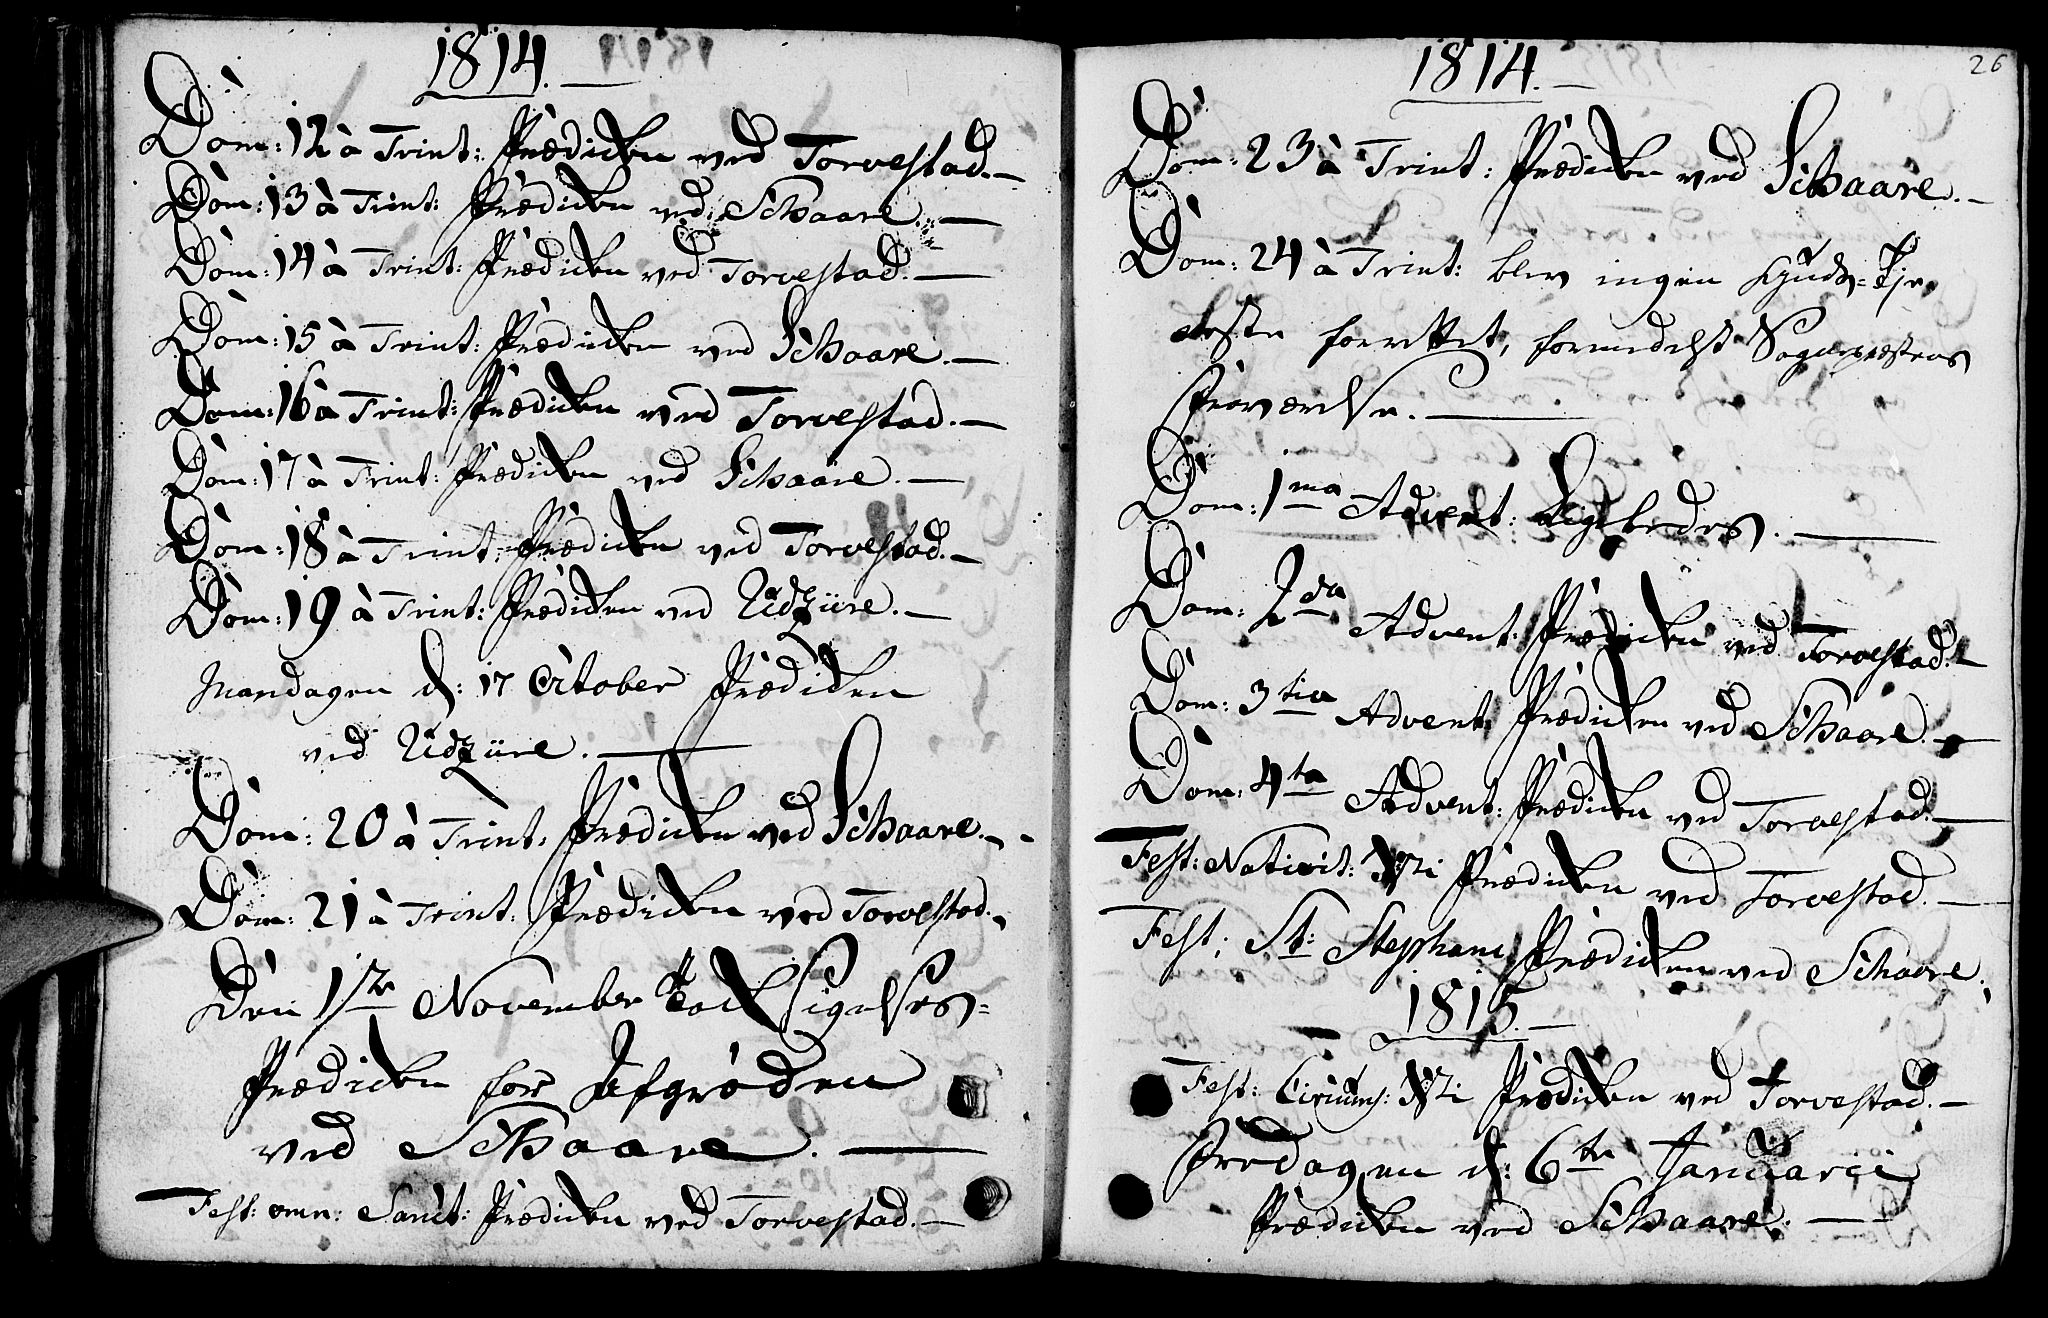 1814.
Dom: 12 à Trint: Prædicken ved Torvestad.
Dom: 13 à Trint: Prædicken ved Schaare.
Dom: 14 à Trint: Prædicken ved Torvestad.
Dom: 15 à Trint: Prædicken ved Schaare.
Dom: 16 à Trint: Prædicken ved Torvestad.
Dom: 17 à Trint: Prædicken ved Schaare.
Dom: 18 à Trint: Prædicken ved Torvestad.
Dom: 19 à Trint: Prædicken ved Udziire.
Mandagen d: 17 October Prædicken
ved Udziire.
Dom: 20 à Trint: Prædicken ved Schaare.
Dom: 21 à Trint: Prædicken ved Torvestad.
Den 1ste November Tack Sigelses-
Prædicken for Afgröden
ved Schaare.
Fest: omn: Sanct: Prædicken ved Torvestad.
1814.
26
Dom: 23 à Trint: Prædicken ved Schaare.
Dom: 24 à Trint: blev ingen Guds-Tje
neste forrettet, formedelst Sogneprestens
Fraværelse.
Dom: 1ma Advent: Ligeledes.
Dom: 2da Advent: Prædicken ved Torvestad.
Dom: 3tia Advent: Prædicken ved Schaare.
Dom: 4ta Advent: Prædicken ved Torvestad.
Fest: Nativit: Xti Prædicken ved Torvestad.
Fest: St: Stephani Prædicken ved Schaare.
1815.
Fest: Circums: Xti Prædicken ved Torvestad.
Fredagen d: 6te Januarii
Prædicken ved Schaare.